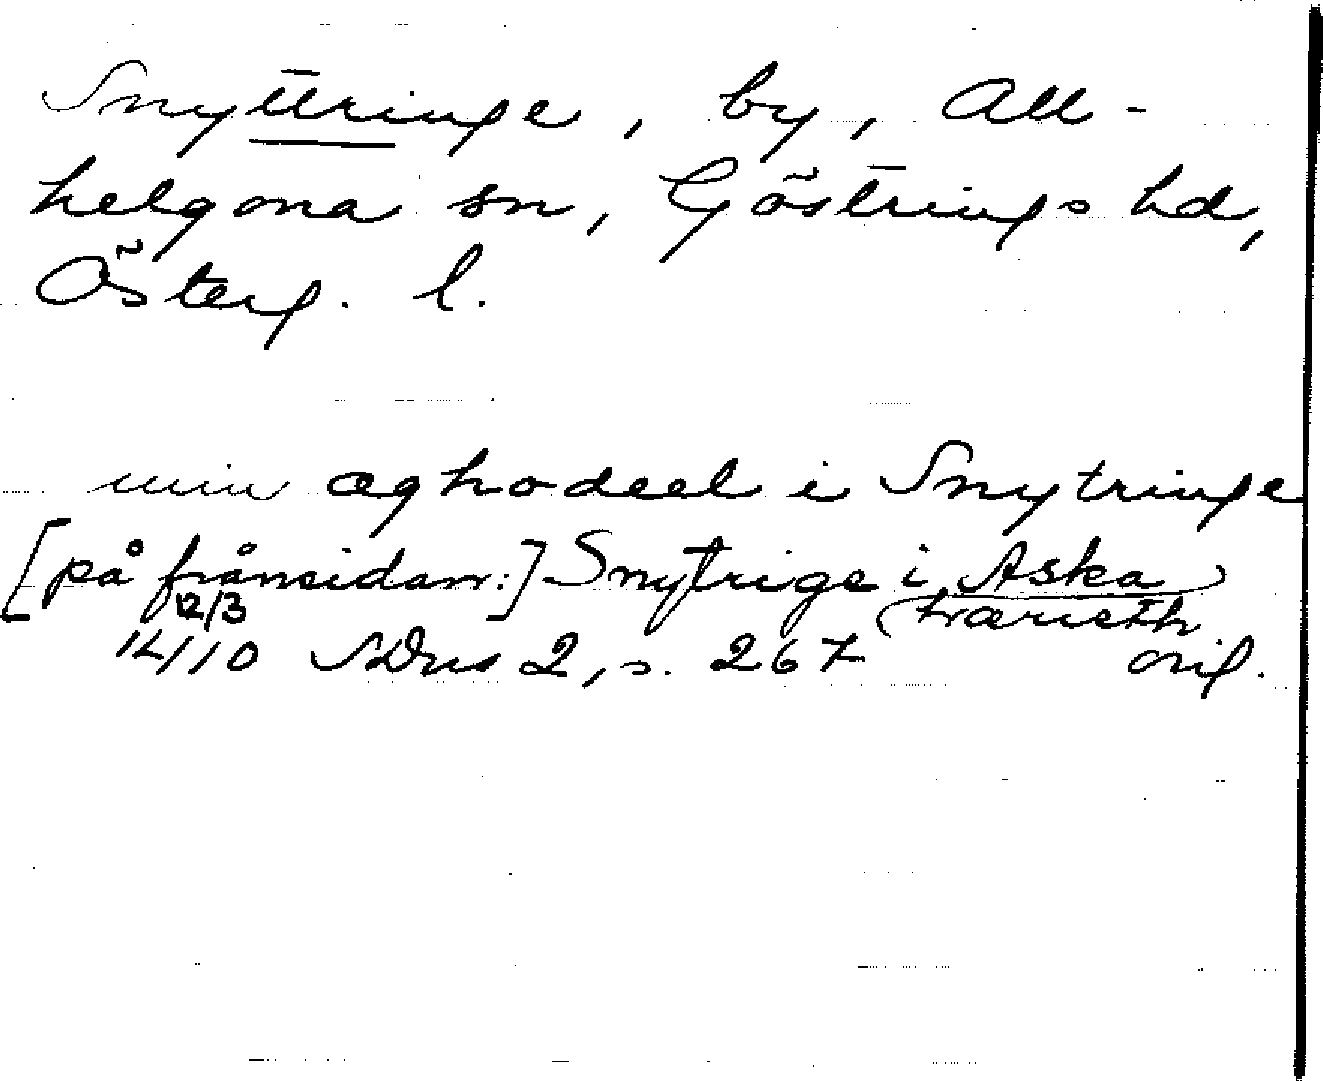 Snyttringe, by, All-
helgona sn, Göstrings hd,
Österg. l.
min æghodeel i Snytringe
[på frånsidan:] Snytrige i Aska
hæræth
12/3
1410 SDns 2, s. 267 orig.